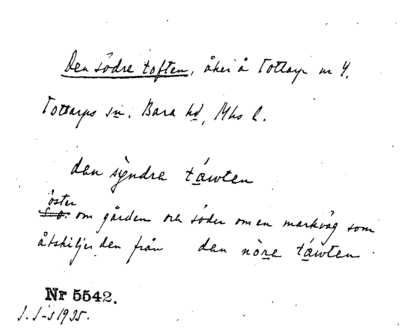 Den södre toften, åker å Tottarp nr 4.
Tottarps sn. Bara hd, Mhs l.
dan syndra táwten
öster
s.o. om gården och söder om en markväg som
åtskiljer den från dan nöre táwten
Nr 5542.
1935.